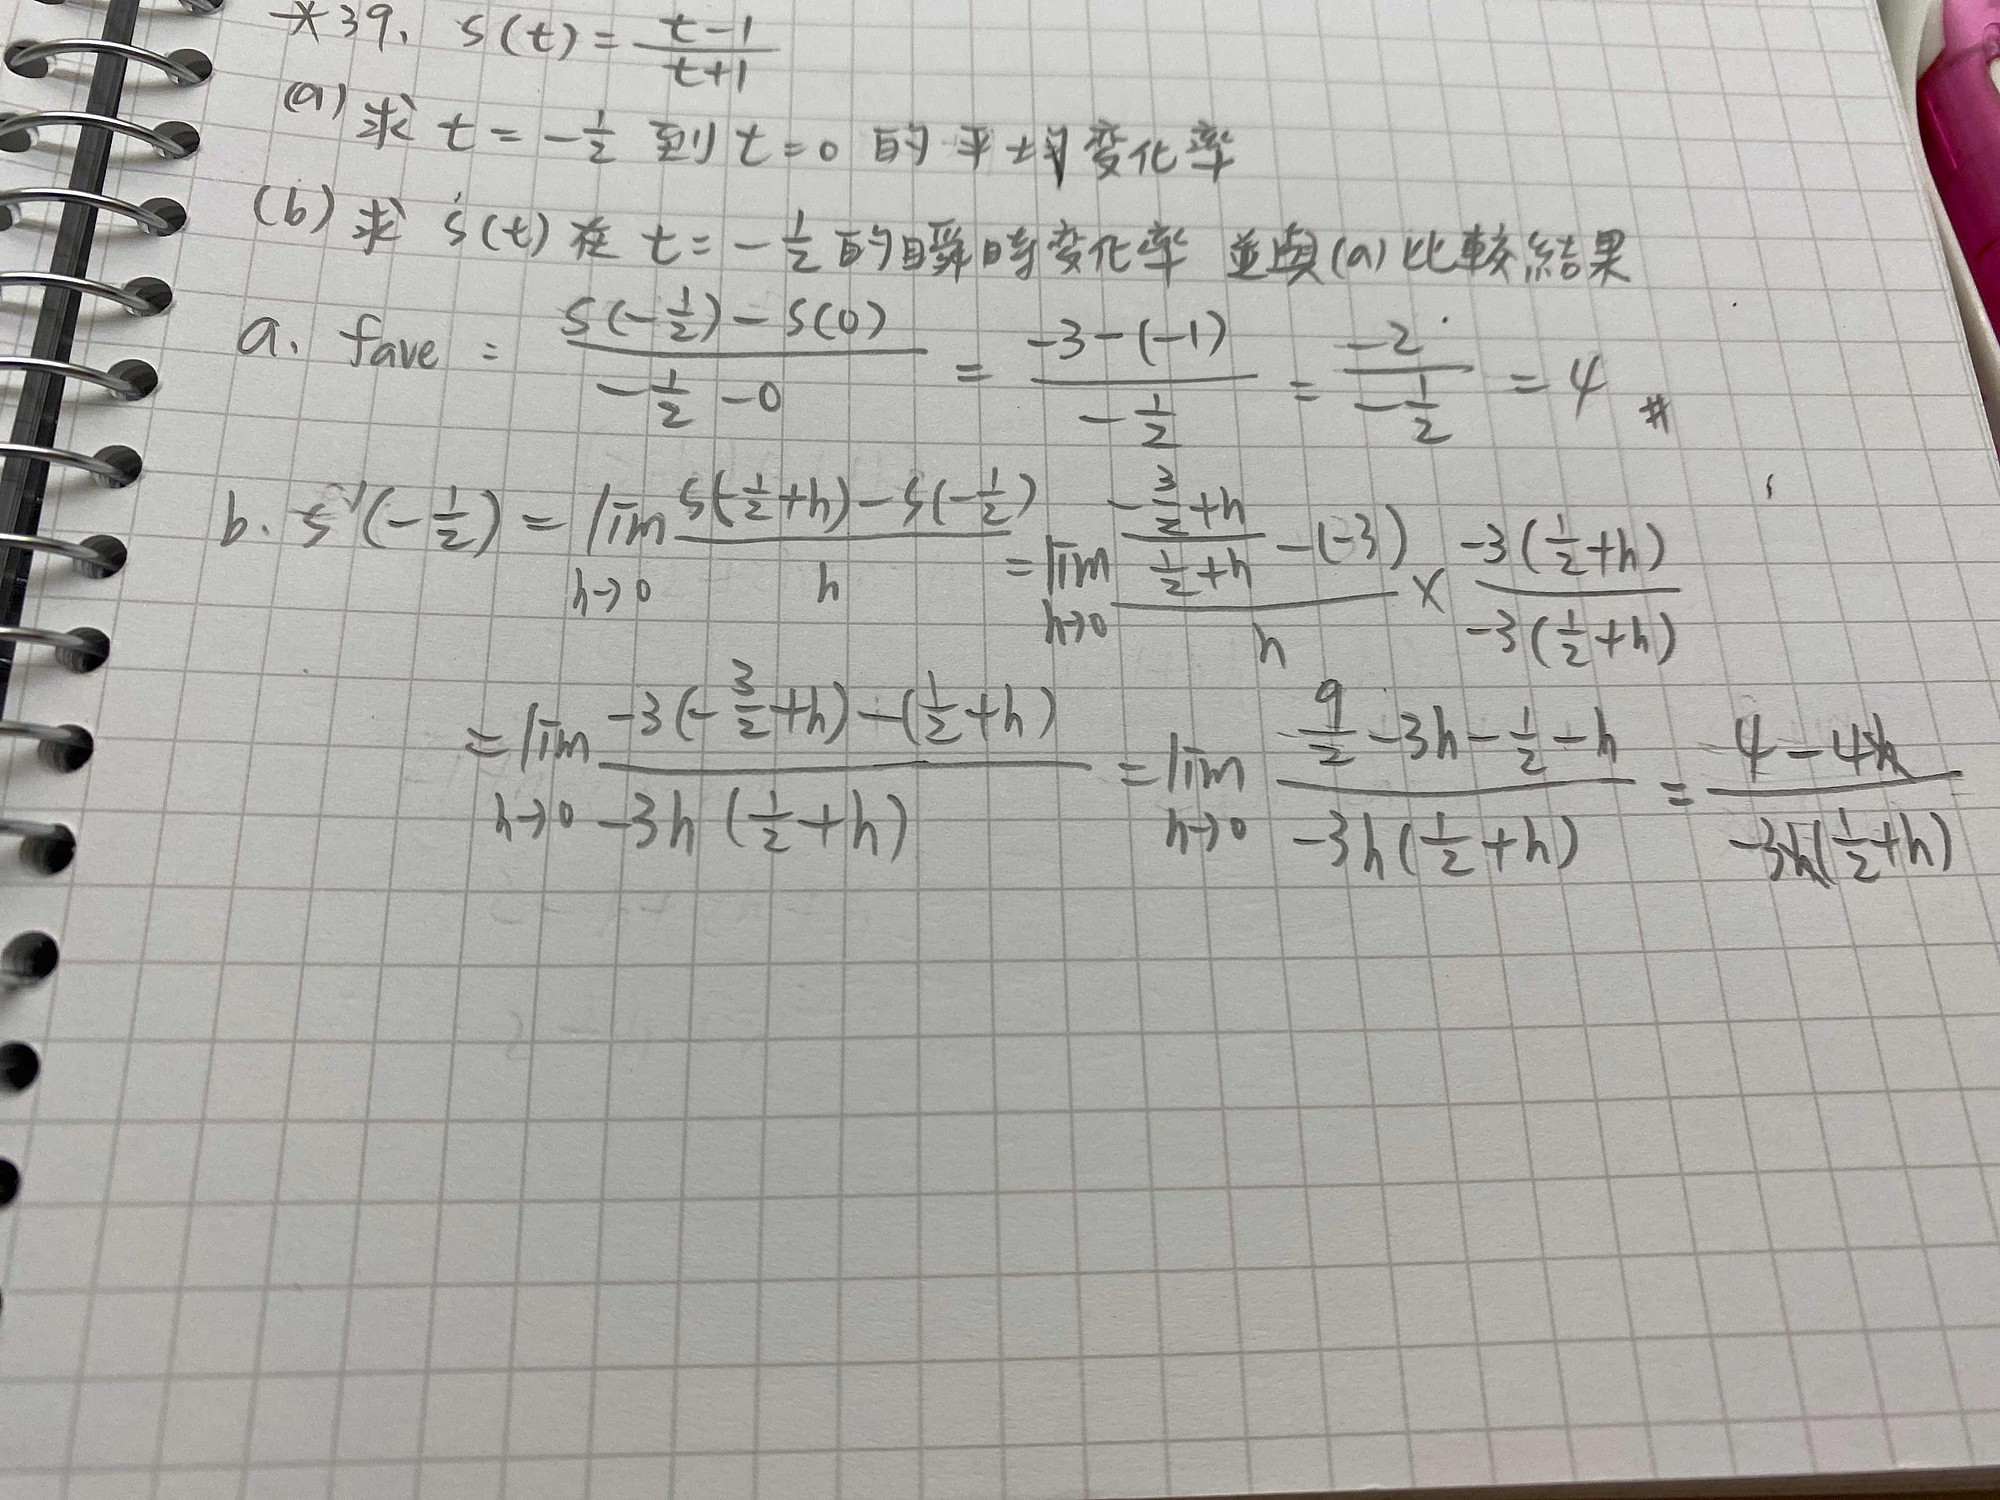 *39. s(t) = (t-1)/(t+1)
(a) 求 t = -1/2 到 t = 0 的平均變化率
(b) 求 s(t) 在 t = -1/2 的瞬時變化率 並與(a)比較結果
a. fave = (s(-1/2) - s(0))/(-1/2 - 0) = (-3-(-1))/(-1/2) = (-2)/(-1/2) = 4 #
b. s'(-1/2) = lim h→0 (s(-1/2+h) - s(-1/2))/h = lim h→0 ((-3/2+h)/(1/2+h) - (-3))/h × (-3(1/2+h))/(-3(1/2+h))
= lim h→0 (-3(-3/2+h) - (1/2+h))/(-3h(1/2+h)) = lim h→0 (9/2 - 3h - 1/2 - h)/(-3h(1/2+h)) = (4-4h)/(-3h(1/2+h))